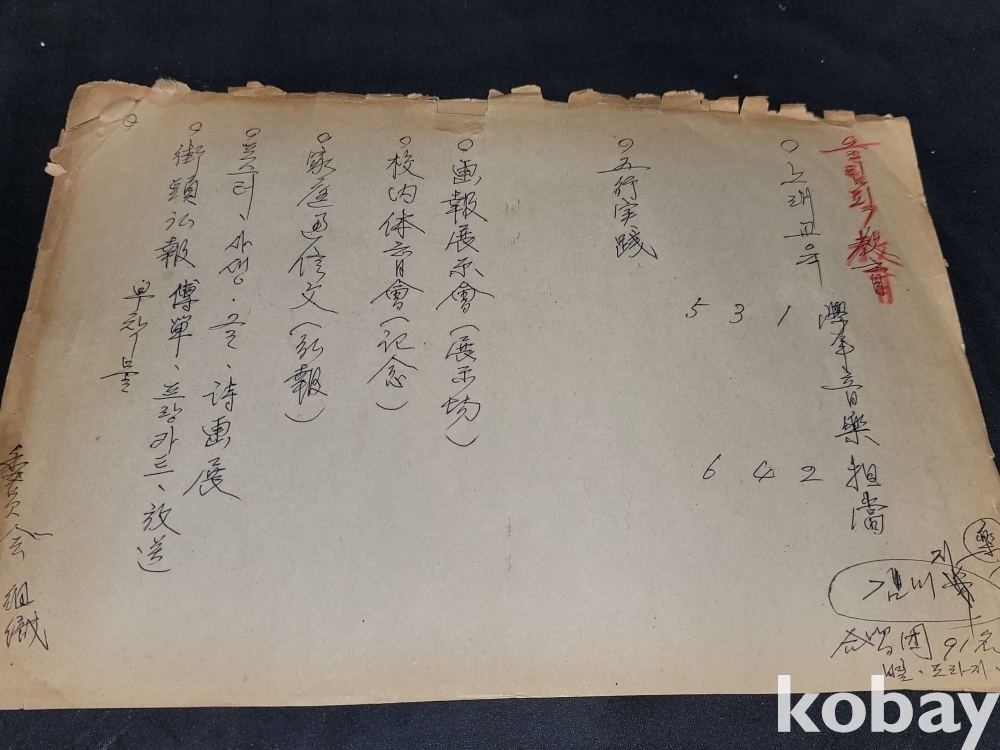 올림픽 敎育
○ 노래교육 學年 音樂 担當
1 2
3 4
5 6
○ 五行実践
○ 画報展示會(展示場)
○ 校內体育會(記念)
○ 家庭通信文(弘報)
○ 포스터、사생・글、詩画展
○ 街頭弘報 傳單、프랑카드、放送
○
부착물
委員会 組織
樂
91名
도라지
kobay